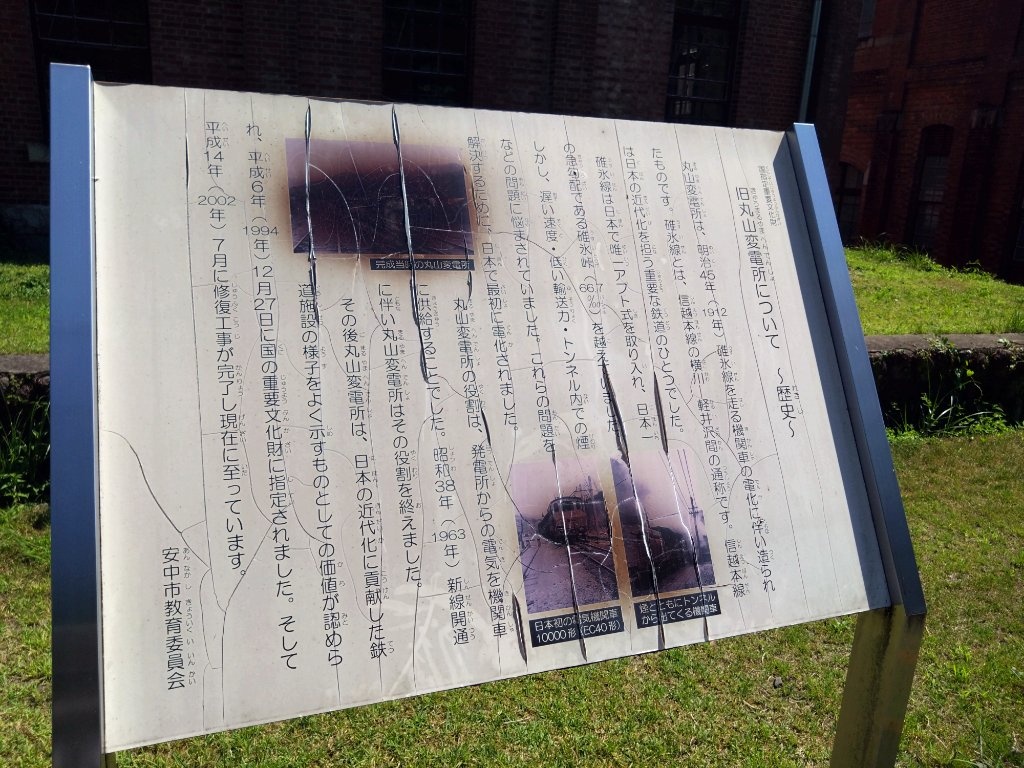 国指定重要文化財
旧丸山変電所について　～歴史～
丸山変電所は、明治45年（1912）碓氷線を走る機関車の電化に伴い造られ
たものです。碓氷線とは、信越本線の横川　軽井沢間の通称です。信越本線
は日本の近代化を担う重要な鉄道のひとつでした。
碓氷線は日本で唯一アプト式を取り入れ、日本一
の急勾配である碓氷峠（66.7‰）を越えていました。
しかし、遅い速度・低い輸送力・トンネル内での煙
などの問題に悩まされていました。これらの問題を
解決するために、日本で最初に電化されました。
丸山変電所の役割は、発電所からの電気を機関車
に供給することでした。昭和38年（1963年）新線開通
に伴い丸山変電所はその役割を終えました。
その後丸山変電所は、日本の近代化に貢献した鉄
道施設の様子をよく示すものとしての価値が認めら
れ、平成6年（1994年）12月27日に国の重要文化財に指定されました。そして
平成14年（2002年）7月に修復工事が完了し現在に至っています。
安中市教育委員会
完成当時の丸山変電所
煙とともにトンネル
から出てくる機関車
日本初の電気機関車
10000形（EC40形）